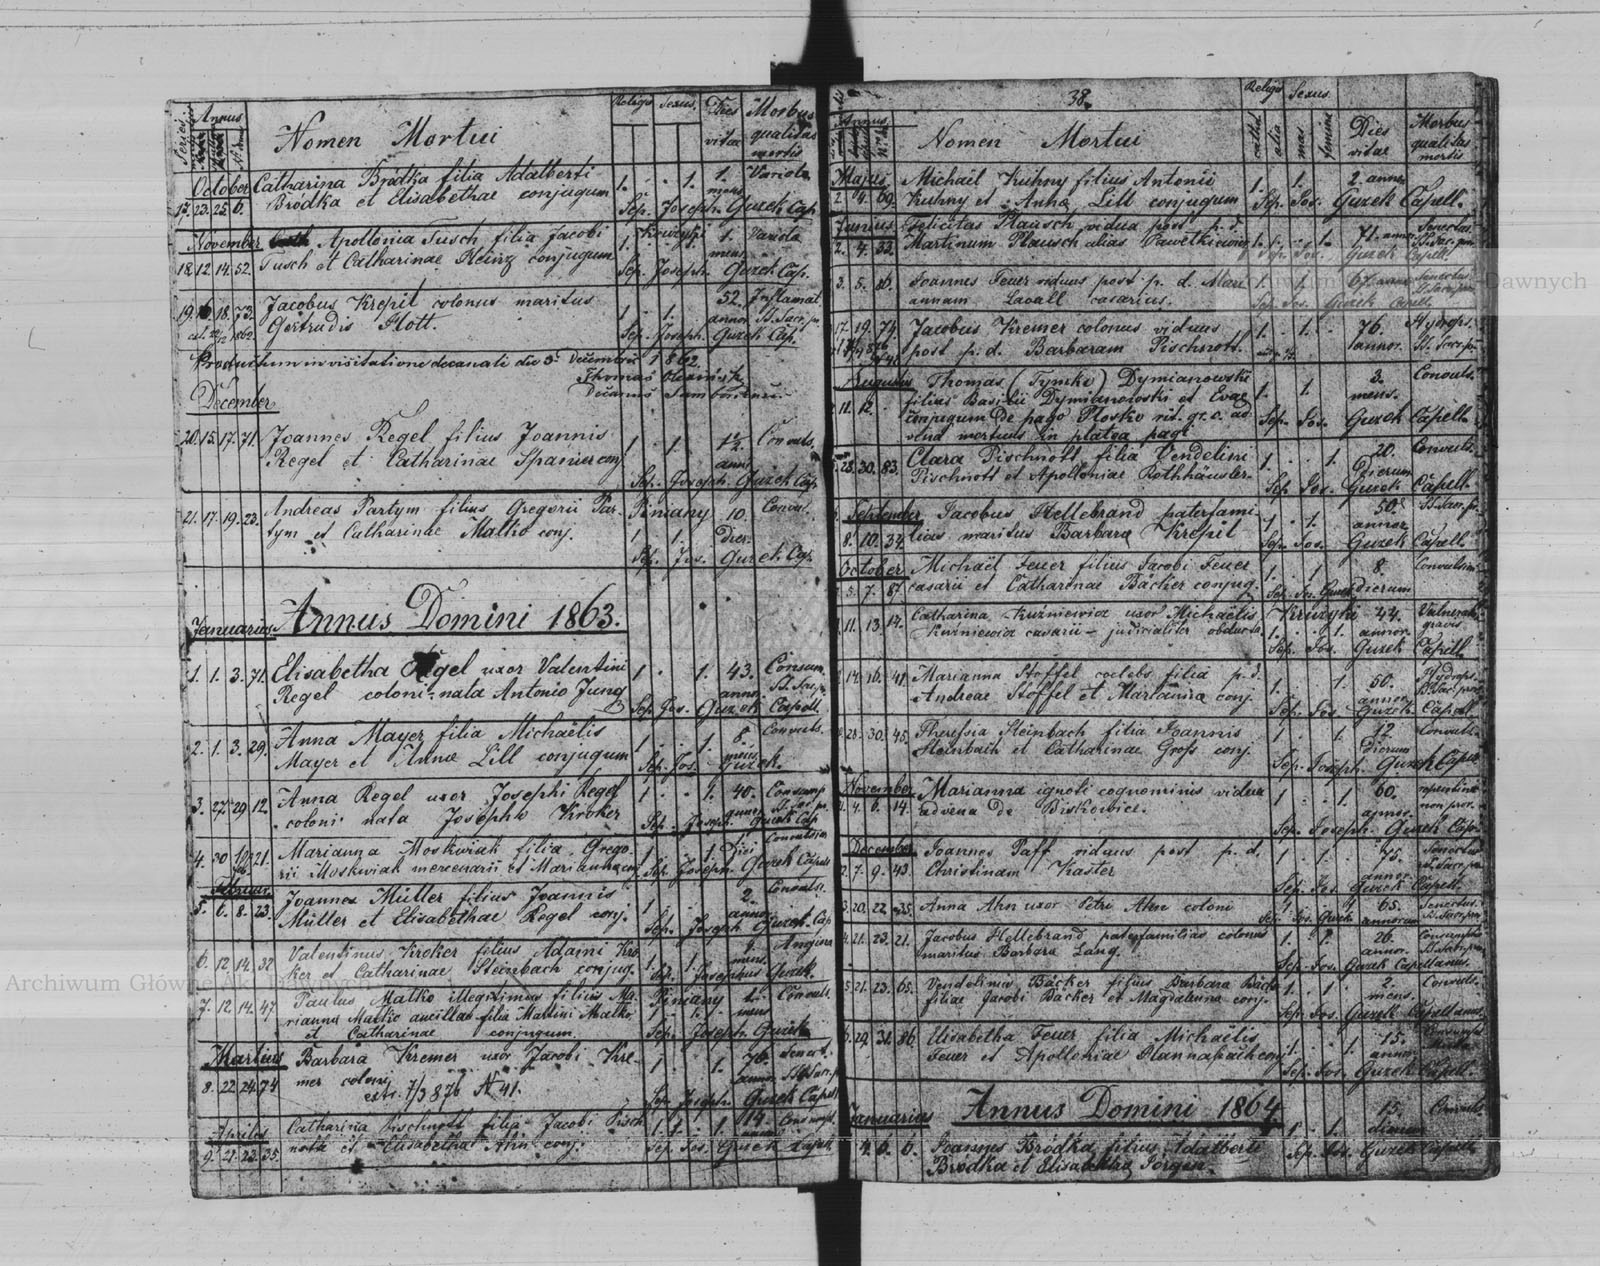 Series. Annus Nomen Mortui Religio Sexus. Dies vitae Morbus qualitas mortis
October Catharina Brodka filia Adalberti 1. 1. 1. Variola
17. 23. 25. 6. Brodka et Elisabethae conjugum mens.
Sep. Joseph. Guzek Cap.
November Apollonia Tusch filia Jacobi 1. 1. Variola
18. 12. 14. 52. Tusch et Catharinae Heinz conjugum mens.
Sep. Joseph. Guzek Cap.
19. 16. 18. 73. Jacobus Krepil colonus maritus 1. 1. 52. Inflamat
Gertrudis Hott. annor. SS. Sacr. p.
Sep. Joseph. Guzek Cap.
Productum in visitatione decanali die 3 Decembris 1862.
Thomas
Decanus
December
20. 15. 17. 71. Joannes Regel filius Joannis 1 1 1½ Convuls.
Regel et Catharinae Spanier conj anni
Sep. Joseph. Guzek Cap.
21. 17. 19. 23. Andreas Partym filius Gregorii Par- Piniany 10. Convul.
tym et Catharinae Malko conj. 1 1. dier.
Sep. Jos. Guzek Cap.
Annus Domini 1863.
Januarius
1. 1. 3. 71. Elisabetha Regel uxor Valentini 1 1. 43. Consum.
Regel coloni nata Antonio Jung annor. SS. Sac. p.
Sep. Jos. Guzek Capell.
2. 1. 3. 29. Anna Mayer filia Michaëlis 1 1. 8 Convuls.
Mayer et Annae Lill conjugum mens.
Sep. Jos. Guzek.
3. 27. 29. 12. Anna Regel uxor Josephi Regel 1 1. 40. Consump
coloni nata Josepho Kroker annor.
Sep. Joseph. Guzek Cap
4. 30 21. Marianna Moskwiak filia Grego- 1 1. Convulsion
rii Moskwiak mercenarii et Marianna conj. Sep. Joseph. Guzek Capell
Februar.
5. 6. 8. 23. Joannes Müller filius Joannis 1 2. Convuls.
Müller et Elisabethae Regel conj. annor.
Sep. Joseph Guzek Cap
6. 12. 14. 37 Valentinus Kroker filius Adami Kro- 9. Angina
ker et Catharinae Steinbach conjug. 1. 1. mens.
Sep. Josephus Guzek.
7. 12. 14. 47. Paulus Malko illegitimus filius Ma- Piniany 1. Convuls.
rianna Malko ancillae filia Martini Malko 1 1. mens
et Catharinae conjugum Sep. Joseph Guzek
Martius Barbara Kremer uxor Jacobi Kre- 1 1. 76. Senect.
8. 22. 24. 74 mer coloni annor. SS. Sacr. p
extr. 7/3 876 N 41. Sep. Joseph. Guzek Capell
Aprilis Catharina Pischnott filia Jacobi Pisch- 1 1. 14. Consumpt.
9. 21. 23. 35. nott et Elisabetha Ahn conj. Sep. Jos. Guzek Capell.
38.
Annus Nomen Mortui Religio Sexus. Dies vitae Morbus qualitas mortis
cathol. alia mas femina
Majus Michaël Kuhny filius Antonii 1. 1. 2. annor
2. 4. 69. Kuhny et Anna Lill conjugum Sep. Jos. Guzek Capell.
Junius Felicitas Plausch vidua post p. d. 71. annor Senectus
2. 4. 33. Martinum Plausch alias 1. 1. SS. Sac. pr.
Sep. Jos. Guzek Capell.
3. 5. 86. Joannes Feuer viduus post p. d. Mari 1. 1. 67. annor Senectus
annam Lavall casarius. Sep. Jos. Guzek Capell
17. 19. 74 Jacobus Kremer colonus viduus 1. 1. 76. Hydrops.
post p. d. Barbaram Pischnott. annor. SS. Sacr. p.
Augustus Thomas (Tymko) Dymianowski 1. 1. 3. Convuls.
11. 12. filius Basilii Dymianowski et Evae mens.
conjugum de pago Plosko rit. gr. c. ad Sep. Jos. Guzek Capell.
vena mortuus in platea pagi
28. 30. 83. Clara Pischnott filia Vendelini 1. 1. 20. Convuls.
Pischnott et Apolloniae Rothhäusler. Dierum
Sep. Jos. Guzek Capell.
September Jacobus Hellebrand paterfami- 1. 1. 50. SS. Sacr. p.
8. 10. 34. lias maritus Barbara Krepil annor.
Sep. Jos. Guzek Capell.
October Michaël Feuer filius Jacobi Feuer 1. 1 8 Convulsion
5. 7. 87. casarii et Catharinae Bäcker conjug. Sep. Jos. Guzek dierum
11. 13. 14. Catharina Kuźniewicz uxor Michaëlis Kruzyki 44. Vulnerat.
Kuzniewicz casarii – judicialiter obducta 1. 1. annor. gravis
Sep. Jos. Guzek Capell
14. 16. 41 Marianna Stoffel coelebs filia p. d. 1. 1. 50. Hydrops.
Andreae Stoffel et Marianna conj. annor SS. Sac. pr.
Sep. Jos. Guzek Capell.
28. 30. 45. Theresia Steinbach filia Joannis 1 1. 12. Convuls.
Steinbach et Catharinae Gross conj. dierum
Sep. Joseph. Guzek Capell
November Marianna ignoti cognominis vidua 1. 1. 60. repentina
4. 6. 14. advena de Biskowice. annor. non prov.
Sep. Joseph. Guzek Cap.
December Joannes Paff viduus post p. d. 1. 1. 75. Senectus
7. 9. 43. Christinam Kaster annor. SS. Sacr. p.
Sep. Jos. Guzek Capell.
20. 22. 35. Anna Ahn uxor Petri Ahn coloni 1. 1 65. Senectus
Sep. Jos. Guzek annorum SS. Sacr. p.
21. 23. 21. Jacobus Hellebrand paterfamilias colonus 1. 1. 26. Consumptio
maritus Barbara Lang. annor. SS. Sacr. pr.
Sep. Jos. Guzek Capellanus.
21. 23. 65. Vendelinus Bäcker filius Barbara Bäcker 1. 1 2. Convuls.
filiae Jacobi Bäcker et Magdalenna conj. mens.
Sep. Jos. Guzek Capellanus.
29. 31. 86. Elisabetha Feuer filia Michaëlis 1. 1. 15.
Feuer et Apolloniae conj annor.
Sep. Jos. Guzek Capell.
Annus Domini 1864.
Januarius
4. 6. 6. Joannes Brodka filius Adalberti 1 1. 15. Convuls.
Brodka et Elisabetha dierum
Sep. Jos. Guzek Capell.
Archiwum Główne Akt Dawnych
Archiwum Główne Akt Dawnych